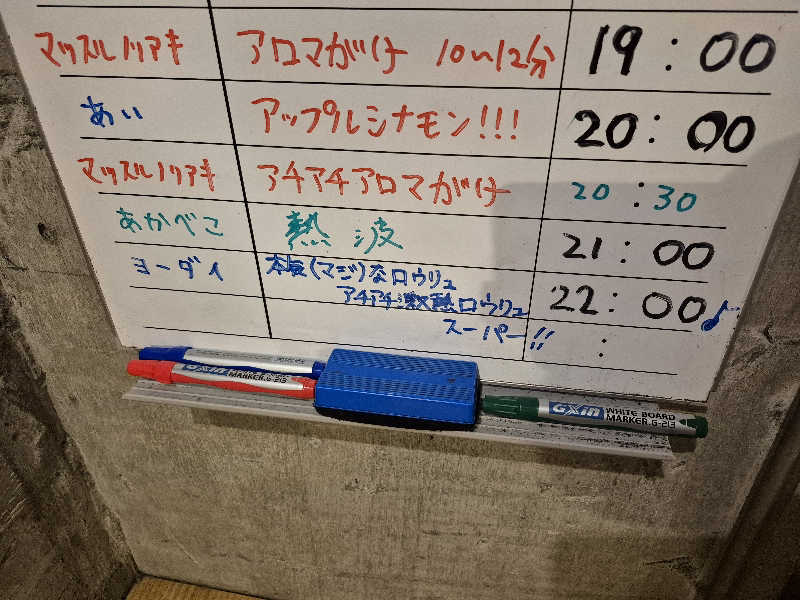 マッスルノリアキ アロマがけ 10〜12分 19:00
あい アップルシナモン!!! 20:00
マッスルノリアキ アチアチアロマがけ 20:30
あかべこ 熱波 21:00
ヨーダイ 本気(マジ)なロウリュ 22:00♪
アチアチ激熱ロウリュ
スーパー!! :
GXin MARKER.G-213
GXin WHITE BOARD
MARKER.G-213